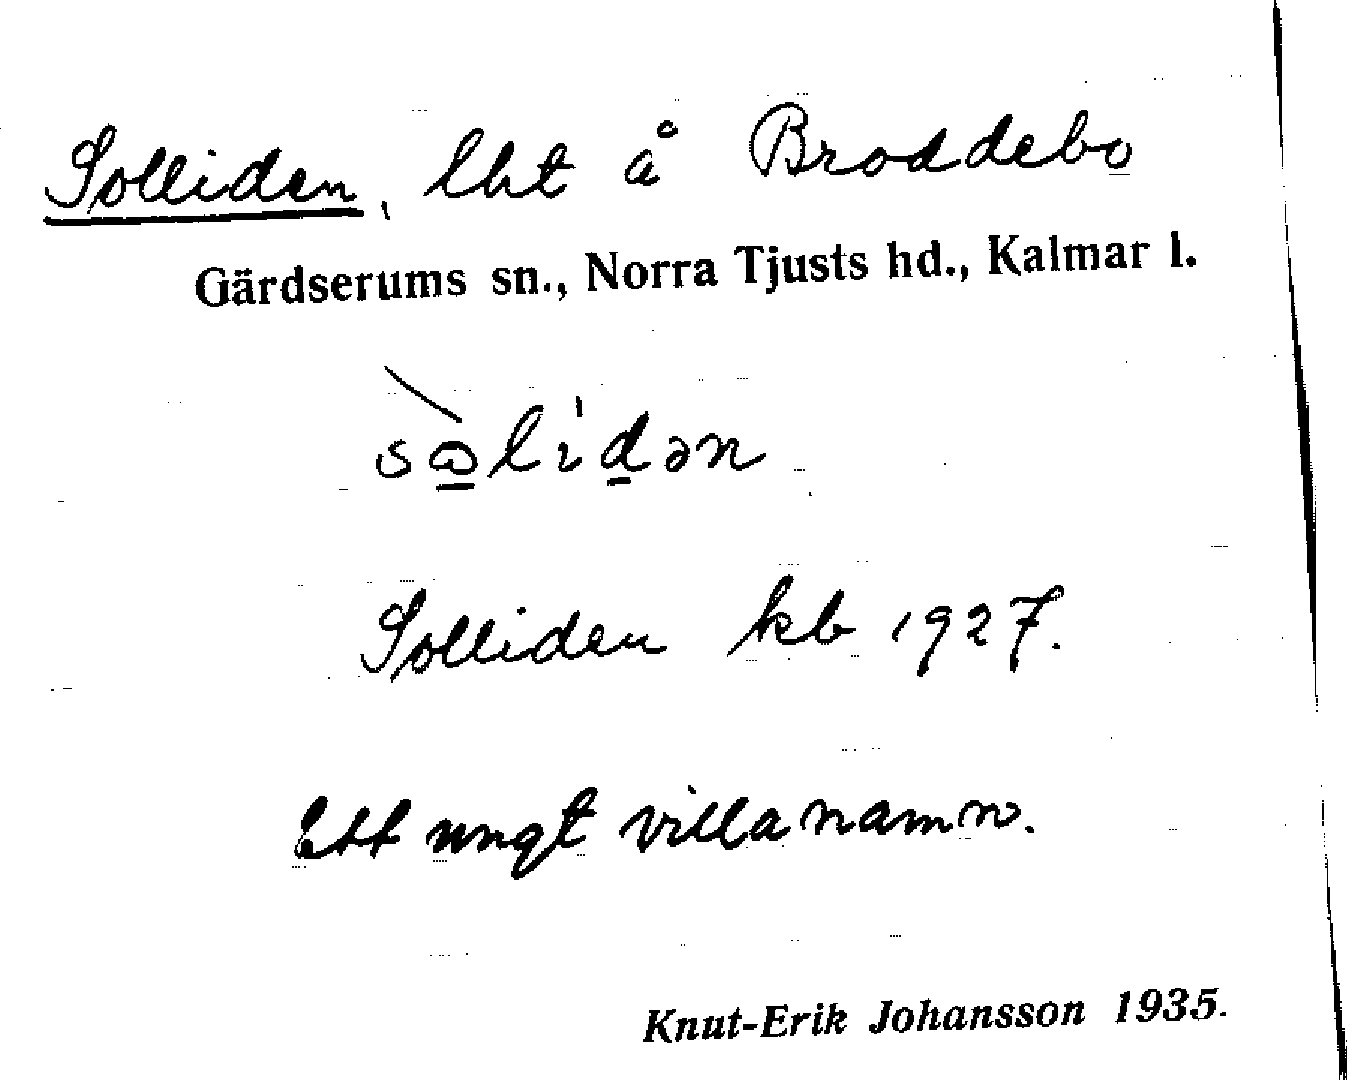 Solliden, lht å Broddebo
Gärdserums sn., Norra Tjusts hd., Kalmar l.
Solliden kb 1927.
Ett ungt villanamn.
Knut-Erik Johansson 1935.